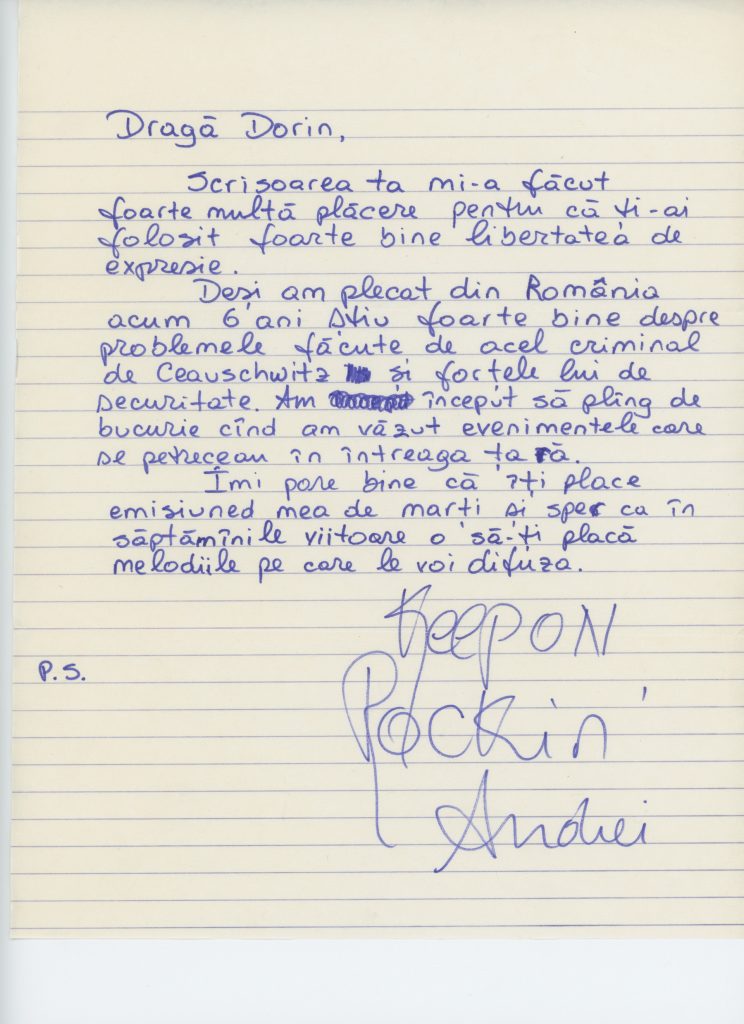 Dragă Dorin,
Scrisoarea ta mi-a făcut
foarte multă plăcere pentru că ți-ai
folosit foarte bine libertatea de
expresie.
Deși am plecat din România
acum 6 ani știu foarte bine despre
problemele făcute de acel criminal
de Ceauschwitz și forțele lui de
securitate. Am început să plîng de
bucurie cînd am văzut evenimentele care
se petreceau în întreaga țară.
Îmi pare bine că îți place
emisiunea mea de marți și sper ca în
săptămînile viitoare o să-ți placă
melodiile pe care le voi difuza.
Keep ON
P.S.
Rockin'
Andrei